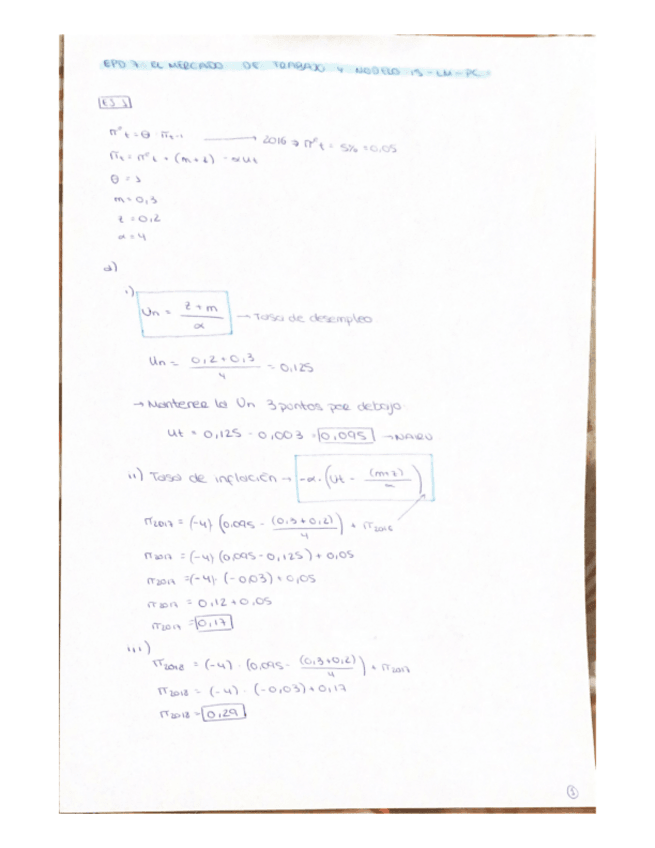 EPD 7: EL MERCADO DE TRABAJO Y MODELO IS-LM-PC:
EJ 1
πᵉt = θ · πt-1 → 2016 → πᵉt = 5% = 0,05
πt = πᵉt + (m+z) - αut
θ = 1
m = 0,3
z = 0,2
α = 4
a)
i)
Un = (z + m) / α → Tasa de desempleo
Un = (0,2 + 0,3) / 4 = 0,125
→ Mantener la Un 3 puntos por debajo
Ut = 0,125 - 0,003 = 0,095 → NAIRU
ii) Tasa de inflación → -α · (Ut - (m+z) / α)
π2017 = (-4) (0,095 - (0,3+0,2) / 4) + π2016
π2017 = (-4) (0,095 - 0,125) + 0,05
π2017 = (-4) · (-0,03) + 0,05
π2017 = 0,12 + 0,05
π2017 = 0,17
iii)
π2018 = (-4) · (0,095 - (0,3+0,2) / 4) + π2017
π2018 = (-4) · (-0,03) + 0,17
π2018 = 0,29